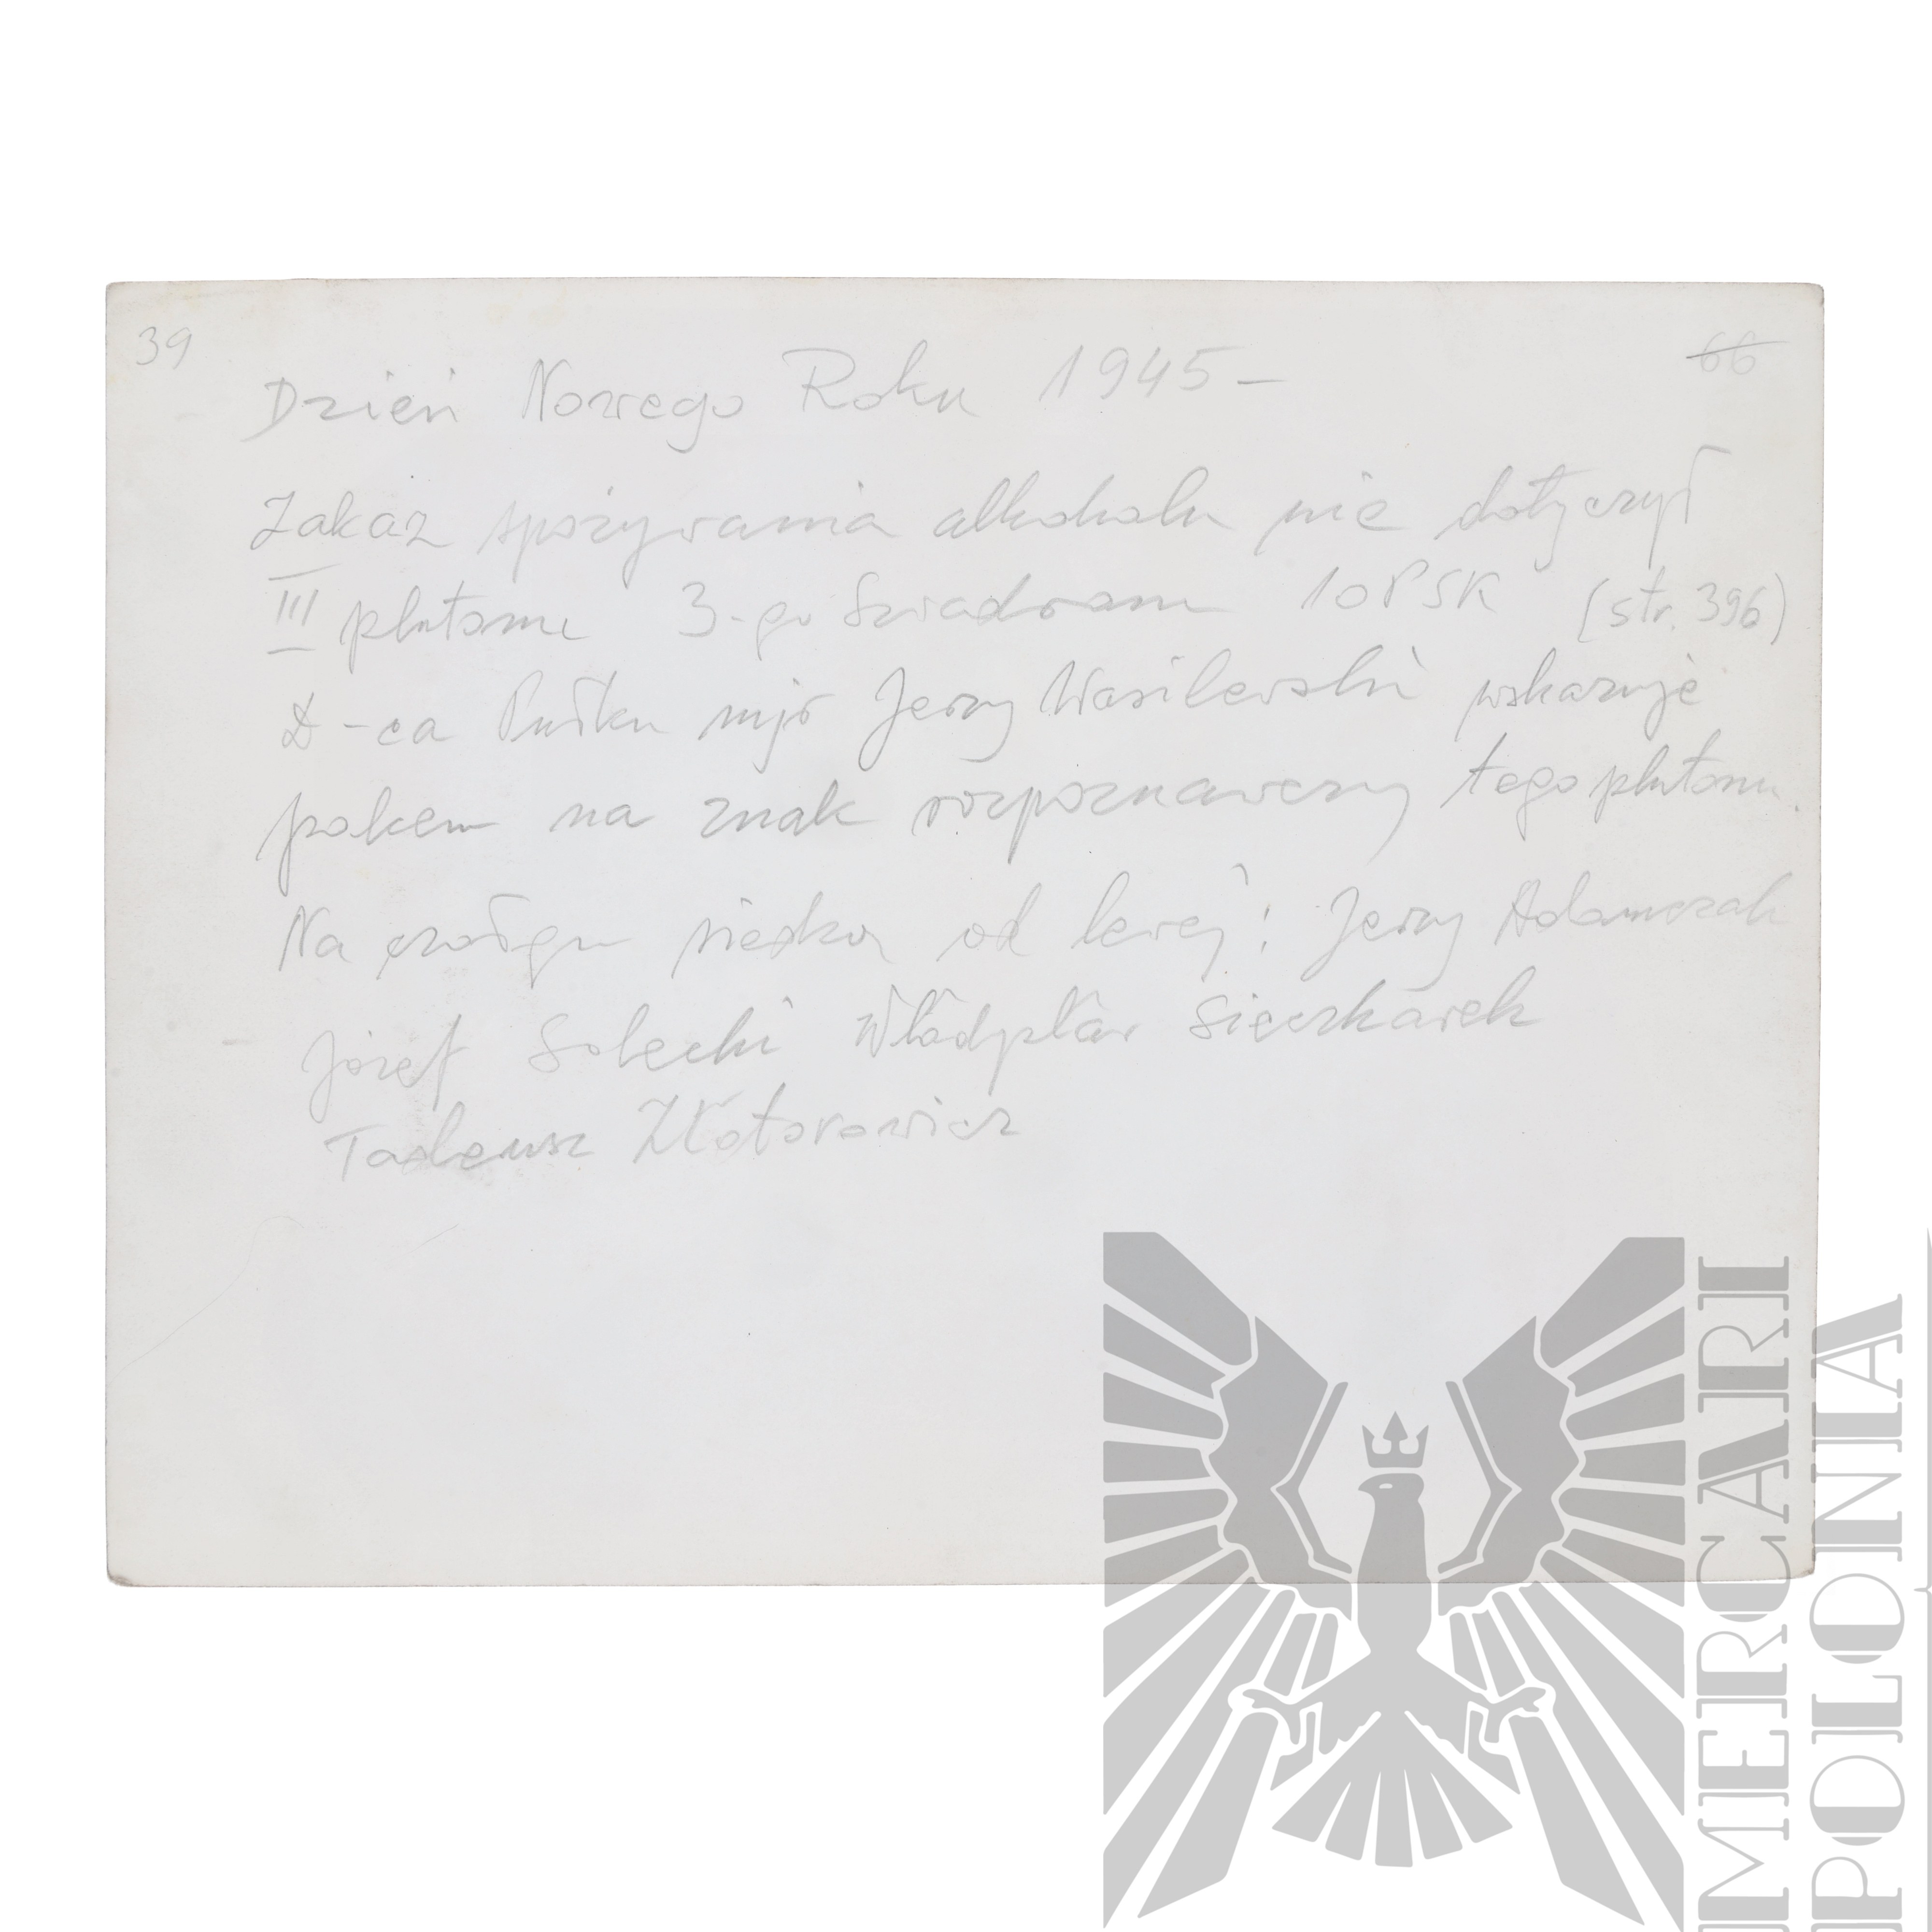 39
66
Dzień Nowego Roku 1945 –
Zakaz spożywania alkoholu nie dotyczył
III plutonu 3-go Szwadronu 10 PSK (str. 396)
D-ca Pułku mjr Jerzy Wasilewski wskazuje
palcem na znak rozpoznawczy tego plutonu.
Na czołgu siedzą od lewej: Jerzy Adamczak
Józef Solecki Władysław Sieczkarek
Tadeusz Złotorowicz
MERCARI
POLONIA